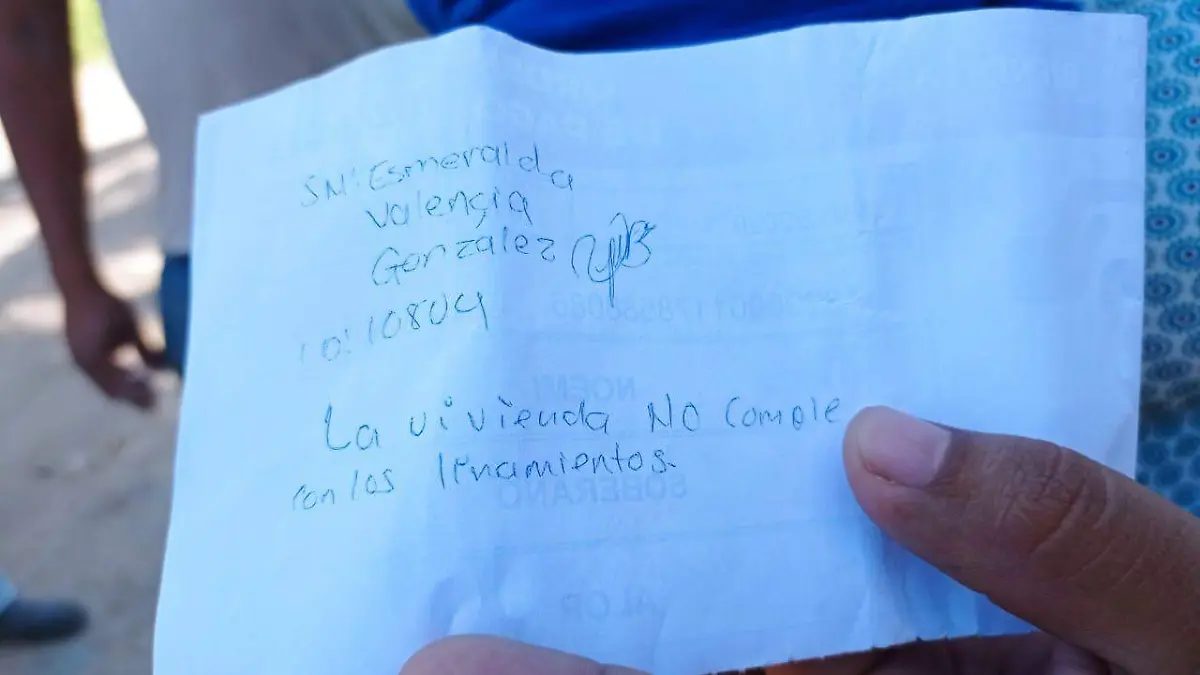 SN: Esmeralda
Valencia
Gonzalez
ID: 10804
La vivienda NO comple
con los linamientos.
NOEMI
SOBERANO